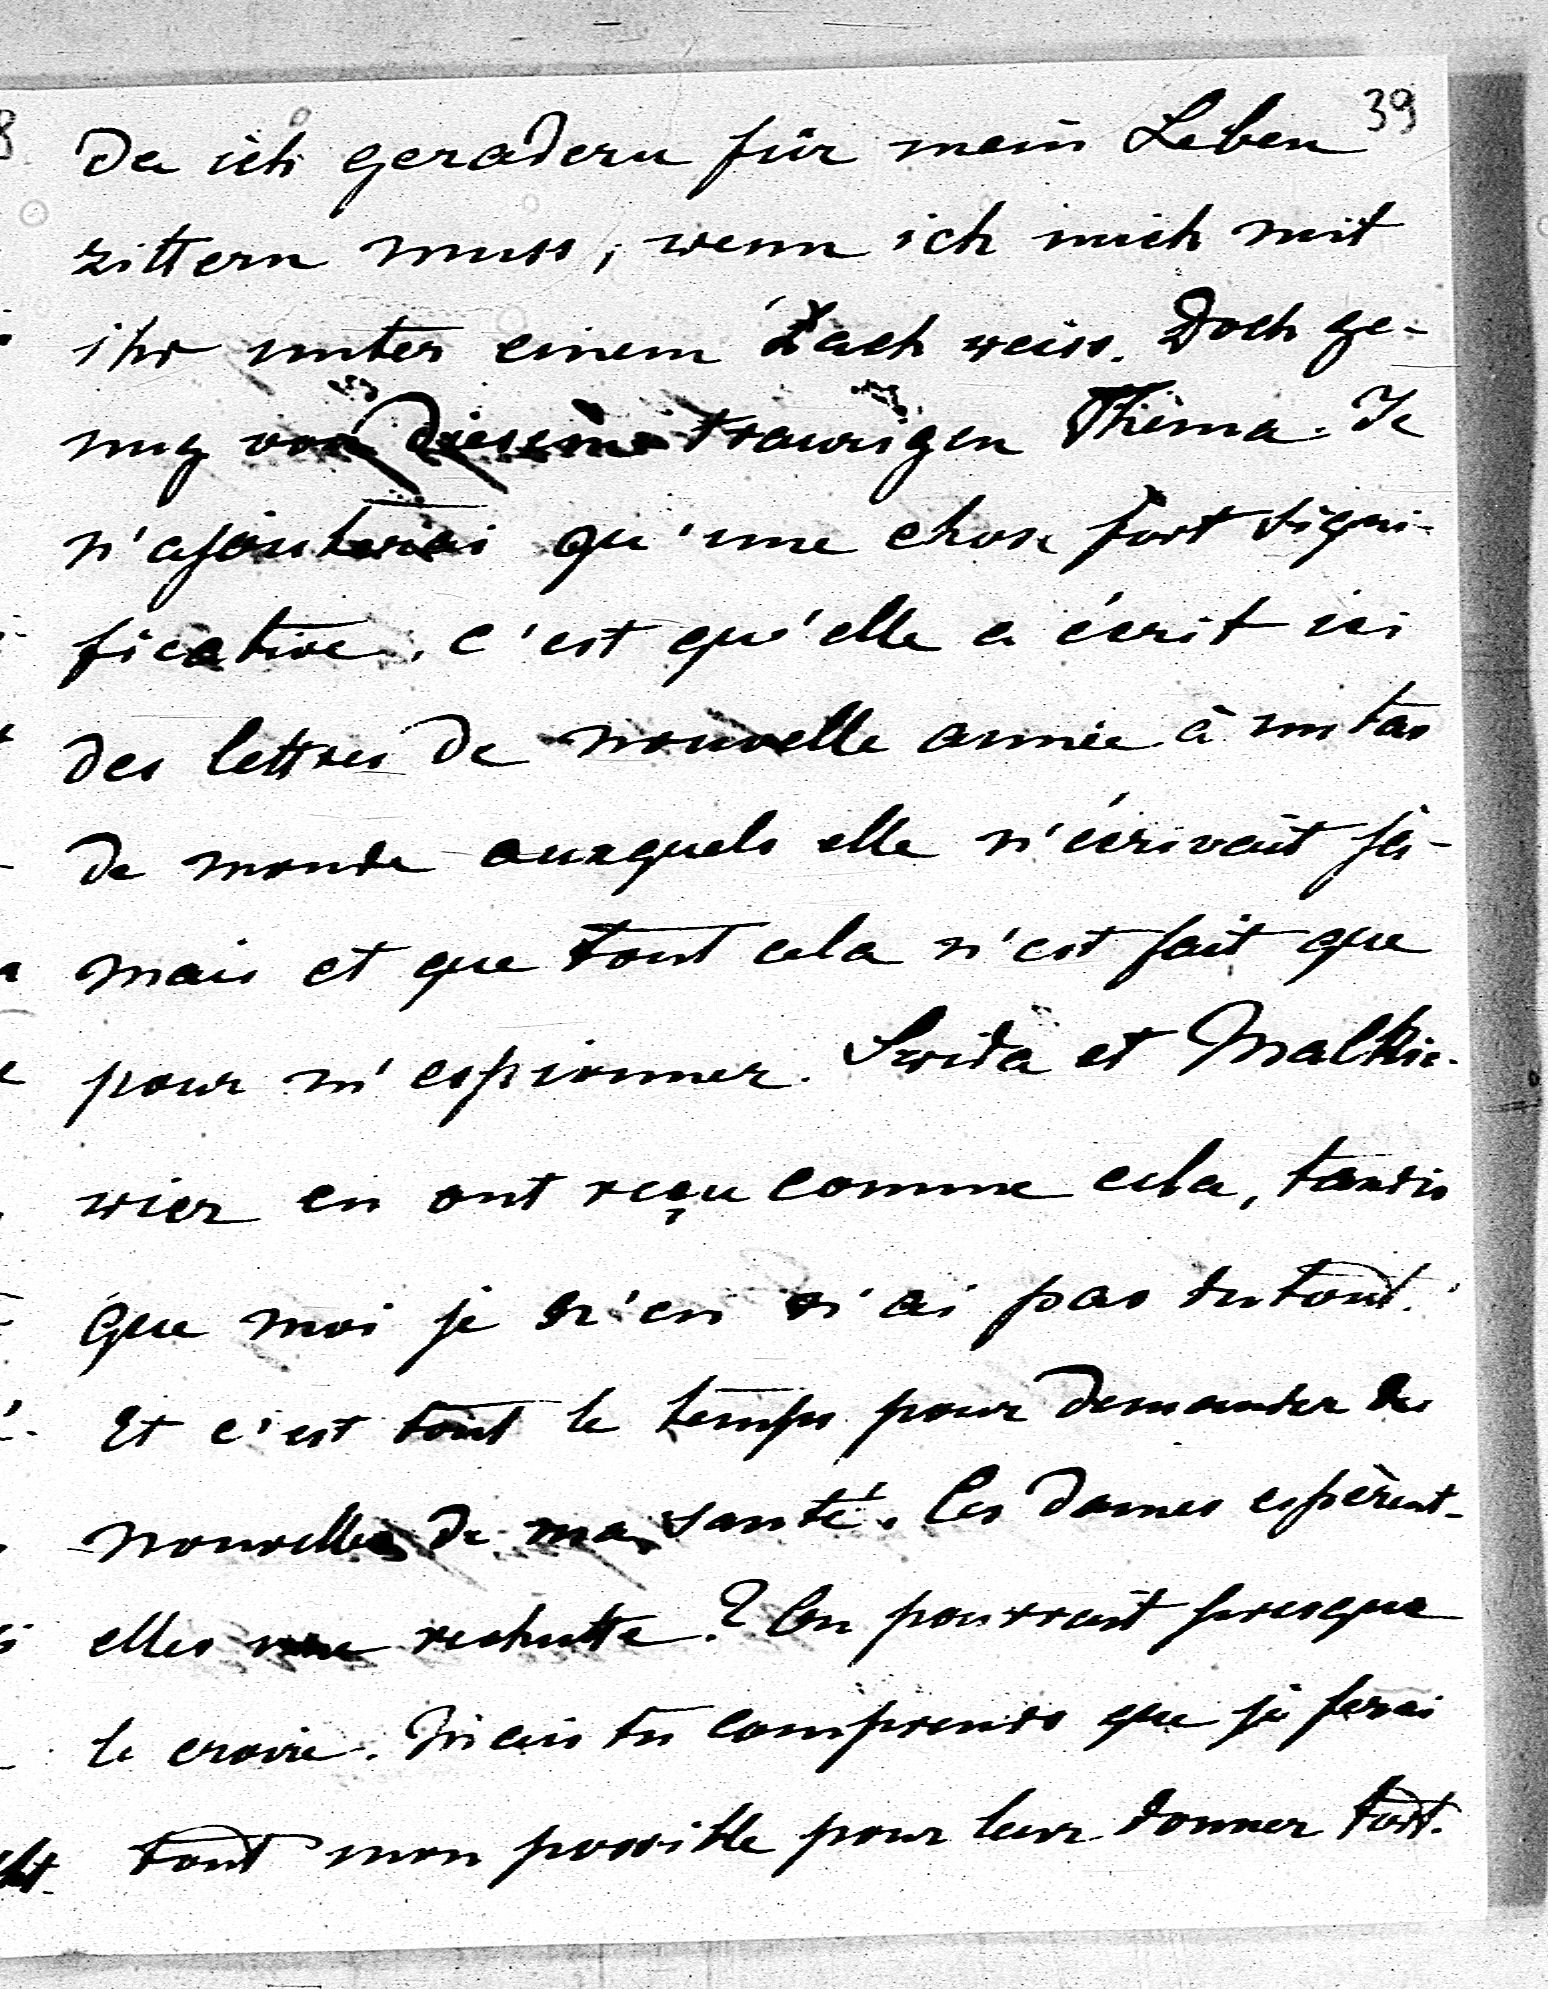 39
da ich geradezu für mein Leben
zittern muss, wenn ich mich mit
ihr unter einem Dach weiss. Doch ge-
nug von diesem traurigen Thema. Je
n'ajouterai qu'une chose fort signi-
ficative, c'est qu'elle a écrit ici
des lettres de nouvelle année à un tas
de monde auxquels elle n'écrivait ja-
mais et que tout cela n'est fait que
pour m'espionner. Swida et Malkie-
wicz en ont reçu comme cela, tandis
que moi je n'en n'ai pas du tout.
Et c'est tout le temps pour demander des
nouvelles de ma santé. Ces dames espèrent-
elles une rechutte? On pourrait presque
le croire. Mais tu comprends que je ferai
tout mon possible pour leur donner tort.